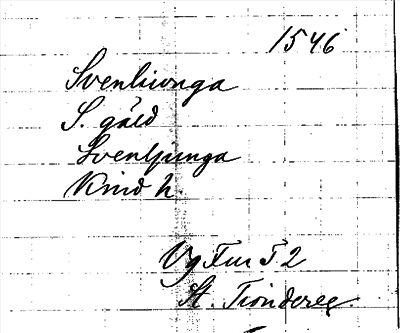 1546
Svenliunga
S. gäld
Svenljunga
Kind h
Vg Fur 5 2
St. Tionderee.